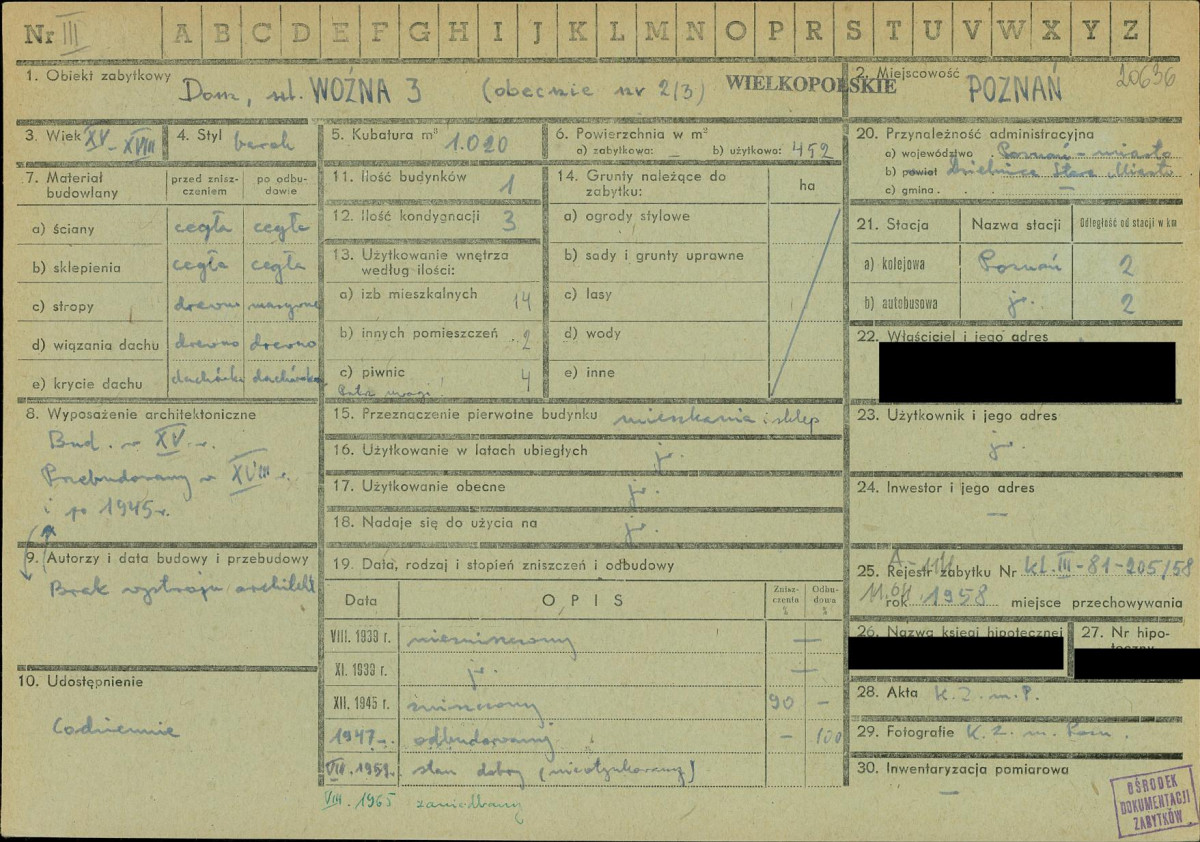 Nr III A B C D E F G H I J K L M N O P R S T U V W X Y Z
1. Obiekt zabytkowy
Dom, ul. WOŹNA 3 (obecnie nr 2/3)
WIELKOPOLSKIE
2. Miejscowość
POZNAŃ
20636
3. Wiek XV - XVIII
4. Styl barok
5. Kubatura m³ 1.020
6. Powierzchnia w m²
a) zabytkowa: — b) użytkowa: 452
7. Materiał budowlany
przed zniszczeniem
po odbudowie
a) ściany cegła cegła
b) sklepienia cegła cegła
c) stropy drewno
d) wiązania dachu drewno drewno
e) krycie dachu dachówka dachówka
8. Wyposażenie architektoniczne
Bud. w XV w.
Przebudowany w XVIII w.
i po 1945 r.
9. Autorzy i data budowy i przebudowy
Brak wystroju architekt
10. Udostępnienie
Codziennie
11. Ilość budynków 1
12. Ilość kondygnacji 3
13. Użytkowanie wnętrza
według ilości:
a) izb mieszkalnych 14
b) innych pomieszczeń 2
c) piwnic 4
Patrz uwagi!
14. Grunty należące do
zabytku:
ha
a) ogrody stylowe
b) sady i grunty uprawne
c) lasy
d) wody
e) inne
15. Przeznaczenie pierwotne budynku mieszkania i sklep
16. Użytkowanie w latach ubiegłych jw.
17. Użytkowanie obecne jw.
18. Nadaje się do użycia na jw.
19. Data, rodzaj i stopień zniszczeń i odbudowy
Data
OPIS
Zniszczenia %
Odbudowa %
VIII. 1939 r. niezniszczony —
XI. 1939 r. jw. —
XII. 1945 r. zniszczony 90 —
1947 r. odbudowany — 100
VIII. 1959 r. stan dobry (nieotynkowany)
VIII. 1965 zaniedbany
20. Przynależność administracyjna
a) województwo Poznań - miasto
b) powiat dzielnica Stare Miasto
c) gmina. —
21. Stacja
Nazwa stacji
Odległość od stacji w km
a) kolejowa Poznań 2
b) autobusowa jw. 2
22. Właściciel i jego adres
23. Użytkownik i jego adres
jw.
24. Inwestor i jego adres
—
25. Rejestr zabytku Nr kl. III-81-205/58
rok 1958 miejsce przechowywania
26. Nazwa księgi hipotecznej
27. Nr hipoteczny
28. Akta K. Z. m. P.
29. Fotografie K. Z. m. Pozn.
30. Inwentaryzacja pomiarowa
—
OŚRODEK
DOKUMENTACJI
ZABYTKÓW